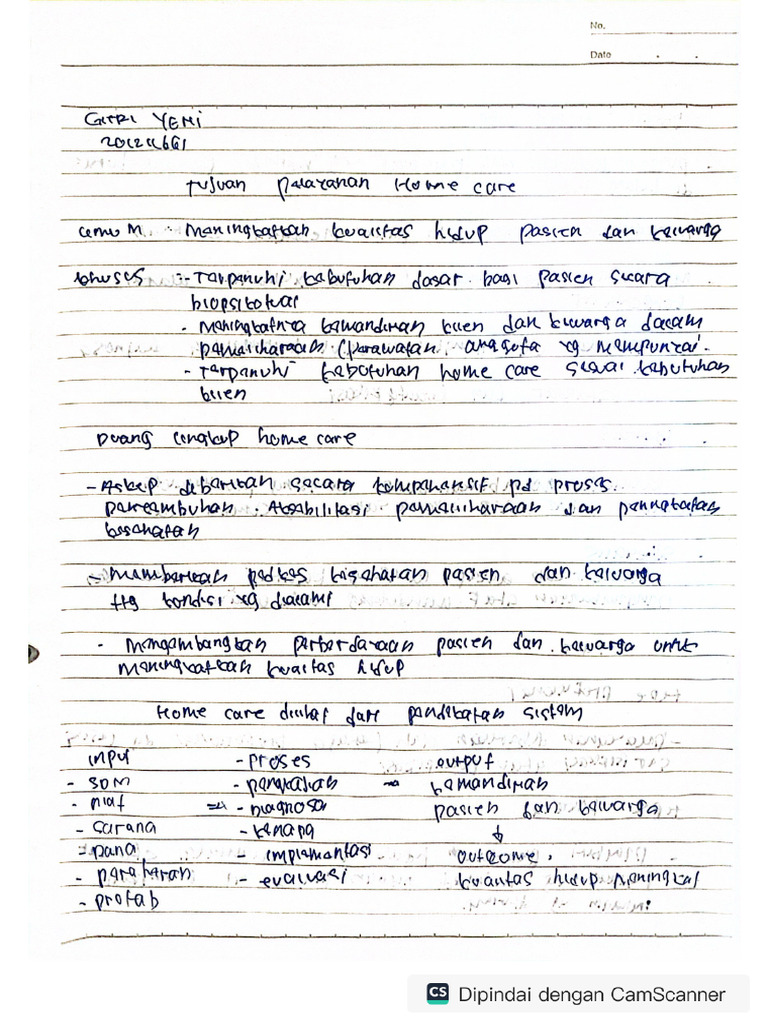 No.
Date
YENI
Tujuan pelayanan Home care
umum : Meningkatkan kualitas hidup pasien dan keluarga
khusus :- Terpenuhi kebutuhan dasar bagi pasien secara
- Meningkatnya kemandirian klien dan keluarga dalam
pemeliharaan / perawatan anggota yg mempunyai.
- Terpenuhi kebutuhan home care sesuai kebutuhan
klien
Ruang lingkup home care
- Askep diberikan secara komprehensif pd proses
pemeliharaan dan peningkatan
kesehatan
- Memberikan penkes kesehatan pasien dan keluarga
ttg kondisi yg dialami
- Mengembangkan pemberdayaan pasien dan keluarga untuk
meningkatkan kualitas hidup
Home care dilihat dari pendekatan sistem
input - proses output
- SDM - pengkajian → kemandirian
- niat ⇒ - Diagnosa pasien dan keluarga
- sarana - renana ↓
- Dana - implementasi outcome.
- peralatan - evaluasi kualitas hidup meningkat
- protab
CS Dipindai dengan CamScanner